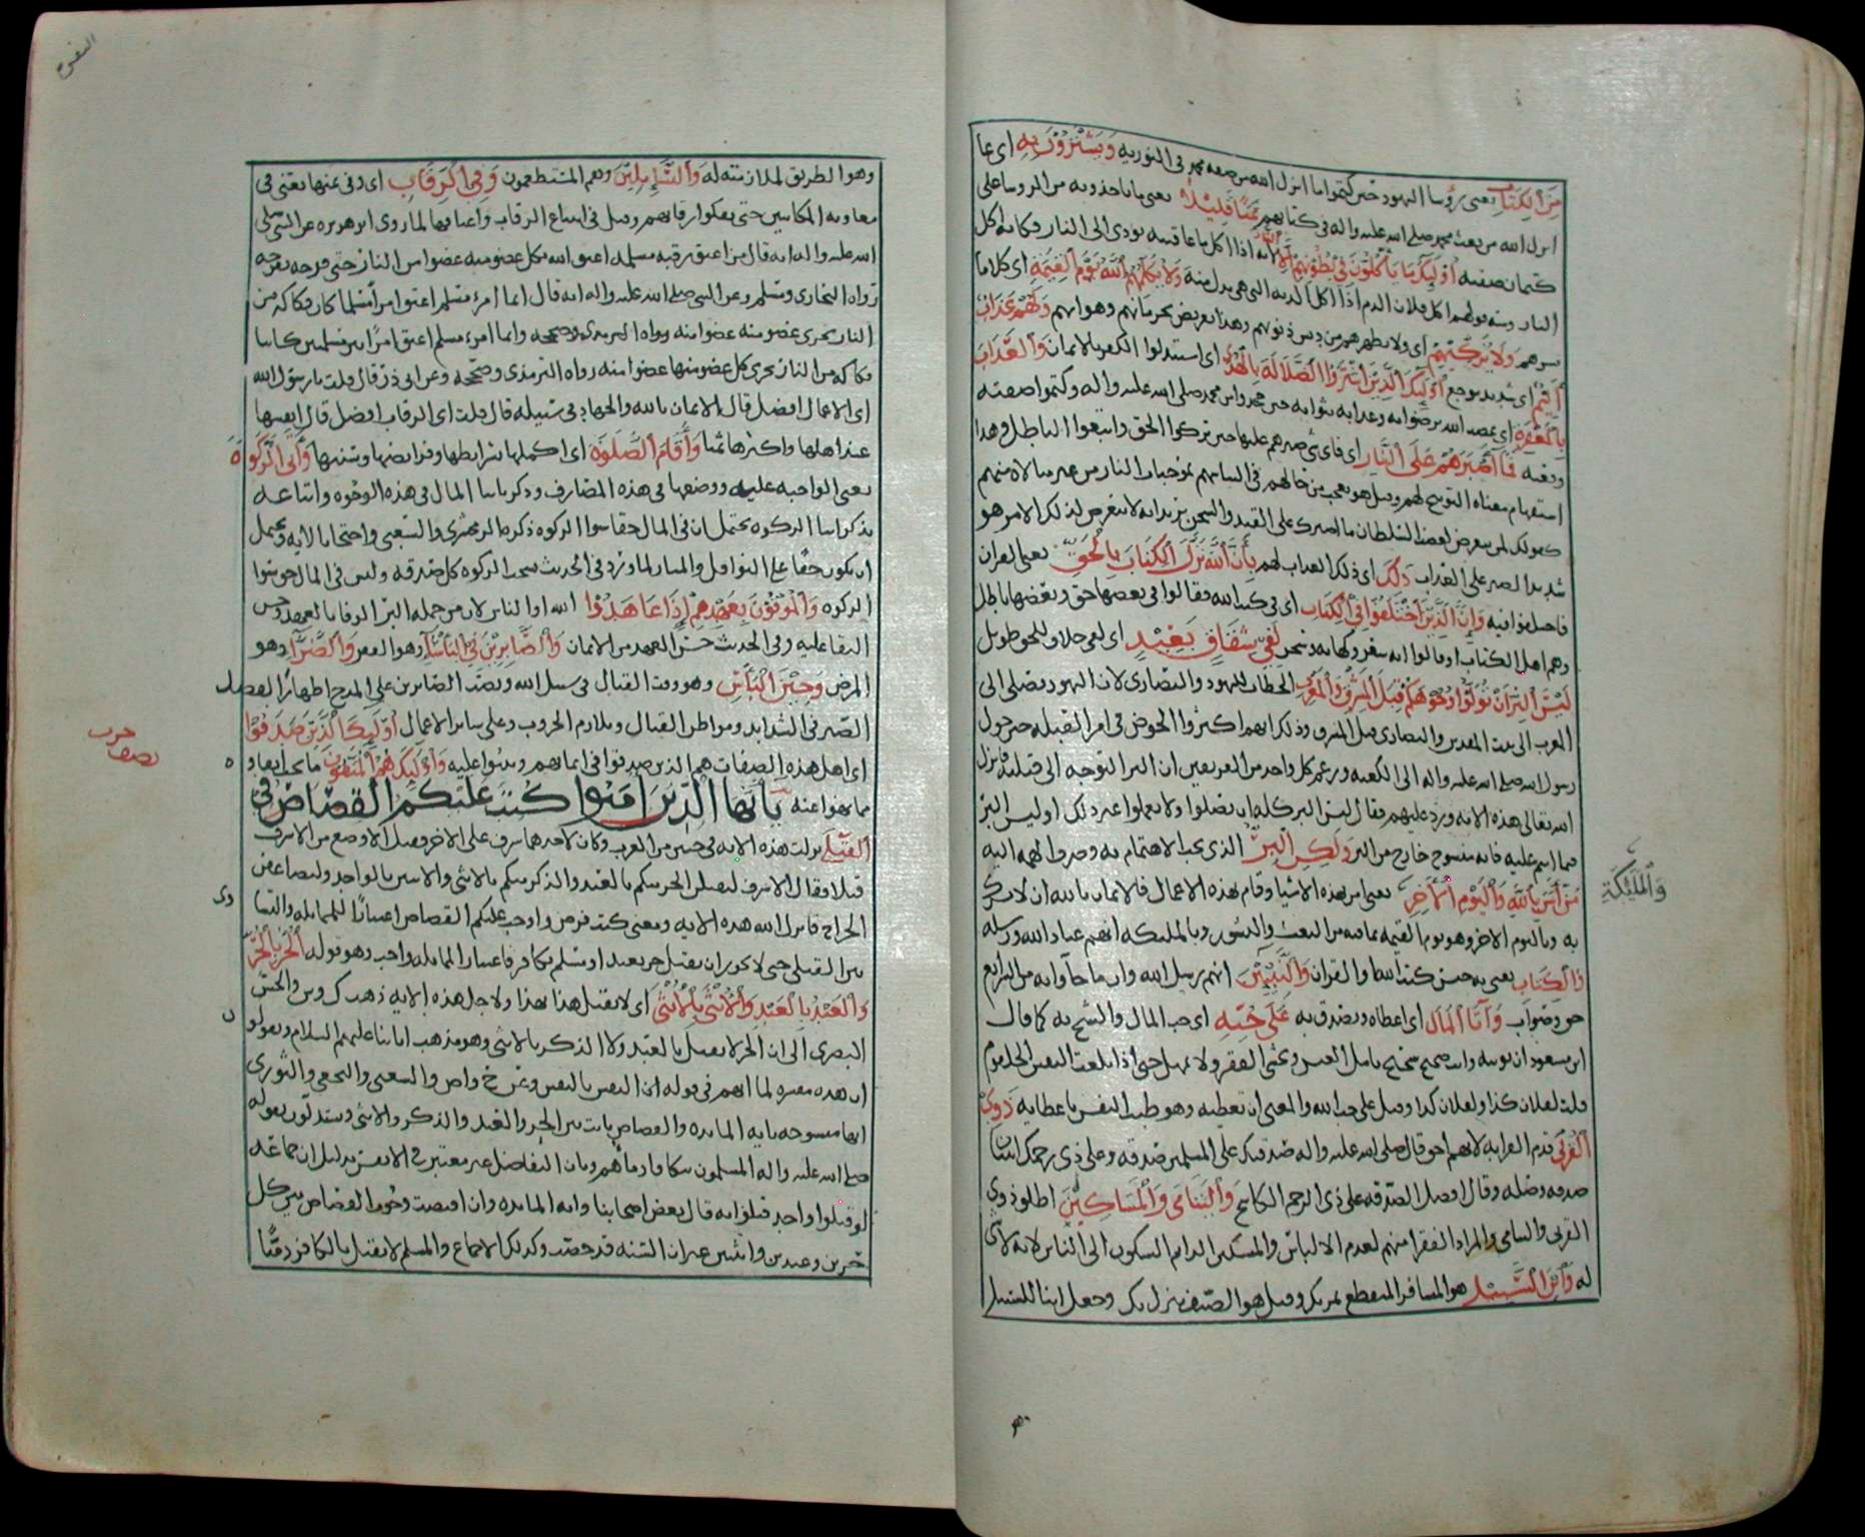 مِنَ الْكِتَابِ يعنى رؤسا اليهود حين كتموا ما انزل الله من صفه محمد فى التوريه وَيَشْتَرُوْنَ بِهِ اى بما
انزل الله من بعث محمد صلى الله عليه واله فى كتابهم ثَمَنًا قَلِيْلًا يعنى ما ياخذونه من الروسا على
كتمان صفته أُوْلَئِكَ مَا يَأْكُلُوْنَ فِيْ بُطُوْنِهِمْ إِلَّا النَّارَ لانه اذا اكل ما عاقبته تودى الى النار فكانه اكل
النار ومنه قولهم اكل فلان الدم اذا اكل الديه التى هى بدل منه وَلَا يُكَلِّمُهُمُ اللَّهُ يَوْمَ الْقِيَمَةِ اى كلاما
يسرهم وَلَا يُزَكِّيْهِمْ اى ولا يطهرهم من دنس ذنوبهم وهذا تعريض بحرمانهم وهوانهم وَلَهُمْ عَذَابٌ
أَلِيْمٌ اى شديد موجع أُوْلَئِكَ الَّذِيْنَ اشْتَرَوُا الضَّلَالَةَ بِالْهُدَى اى استبدلوا الكفر بالايمان وَالْعَذَابَ
بِالْمَغْفِرَةِ اى غضب الله برضوانه وعذابه بثوابه حين جحدوا محمد صلى الله عليه واله وكتموا صفته
ونعته فَمَا أَصْبَرَهُمْ عَلَى النَّارِ اى فاى شى صبرهم عليها حين تركوا الحق واتبعوا الباطل وهذا
استفهام معناه التوبيخ لهم وقيل هو تعجب من حالهم فى التباسهم بموجبات النار من غير مبالاة منهم
كقولك لمن يتعرض لغضب السلطان ما اصبرك على القيد والسجن تريد انه لا يتعرض لذلك الا من هو
شديد الصبر على العذاب ذَلِكَ اى ذلك العذاب لهم بِأَنَّ اللَّهَ نَزَّلَ الْكِتَابَ بِالْحَقِّ يعنى القران
فاختلفوا فيه وَإِنَّ الَّذِيْنَ اخْتَلَفُوْا فِي الْكِتَابِ اى فى كتب الله فقالوا فى بعضها حق وبعضها باطل
وهم اهل الكتاب او قالوا انه شعر وكهانه وسحر لَفِيْ شِقَاقٍ بَعِيْدٍ اى لفى خلاف للحق طويل
لَيْسَ الْبِرَّ أَنْ تُوَلُّوْا وُجُوْهَكُمْ قِبَلَ الْمَشْرِقِ وَالْمَغْرِبِ الخطاب لليهود والنصارى لان اليهود تصلى الى
المغرب الى بيت المقدس والنصارى قبل المشرق وذلك انهم اكثروا الخوض فى امر القبله حين حول
رسول الله صلى الله عليه واله الى الكعبه وزعم كل واحد من الفريقين ان البر التوجه الى قبلته فانزل
الله تعالى هذه الايه ورد عليهم فقال ليس البر كله ان تصلوا ولا تعملوا غير ذلك او ليس البر
فيما انتم عليه فانه منسوخ خارج من البر وَلَكِنَّ الْبِرَّ الذى يجب الاهتمام به وصرف الهمه اليه
مَنْ آمَنَ بِاللَّهِ وَالْيَوْمِ الْآخِرِ يعنى امن بهذه الاشيا وقام بهذه الاعمال فالايمان بالله ان لا تشرك
وَالْمَلَئِكَةِ
به وباليوم الاخر وهو يوم القيمه بما فيه من البعث والنشور وبالملئكه انهم عباد الله ورسله
وَالْكِتَابِ يعنى به جنس كتب الله او القران وَالنَّبِيِّيْنَ انهم رسل الله وان ما جآوا به من الشرايع
حق وصواب وَآتَى الْمَالَ اى اعطاه وتصدق به عَلَى حُبِّهِ اى حب المال والشح به كما قال
ابن مسعود ان توتيه وانت صحيح شحيح تامل العيش وتخشى الفقر ولا تمهل حتى اذا بلغت النفس الحلقوم
قلت لفلان كذا ولفلان كذا وقيل على حب الله والمعنى ان تعطيه وهو طيب النفس باعطايه ذَوِي
الْقُرْبَى قدم القرابه لانهم احق قال صلى الله عليه واله صدقتك على المسلمين صدقه وعلى ذى رحمك اثنتان
صدقه وصله وقال افضل الصدقه على ذى الرحم الكاشح وَالْيَتَامَى وَالْمَسَاكِيْنَ اطلق ذوى
القربى واليتامى والمراد الفقرا منهم لعدم الالباس والمسكين الدايم السكون الى الناس لانه لا شى
له وَابْنَ السَّبِيْلِ هو المسافر المنقطع يمر بك وقيل هو الضيف ينزل بك وجعل ابنا للسبيل
وهو الطريق لملازمته له وَالسَّائِلِيْنَ وهم المستطعمون وَفِي الرِّقَابِ اى وفى عتقها يعنى فى
معاونه المكاتبين حتى يفكوا رقابهم وقيل فى ابتياع الرقاب واعتاقها لما روى ابو هريره عن النبى صلى
الله عليه واله انه قال من اعتق رقبه مسلمه اعتق الله بكل عضو منه عضوا من النار حتى فرجه بفرجه
رواه البخارى ومسلم وعن النبى صلى الله عليه واله انه قال ايما امرء مسلم اعتق امرأ مسلما كان فكاكه من
النار يجزى كل عضو منه عضوا منه رواه الترمذى وصححه وايما امرء مسلم اعتق امراتين مسلمتين كانتا
فكاكه من النار يجزى كل عضو منها عضوا منه رواه الترمذى وصححه وعن ابى ذر قال قلت يا رسول الله
اى الاعمال افضل قال الايمان بالله والجهاد فى سبيله قال قلت اى الرقاب افضل قال انفسها
عند اهلها واكثرها ثمنا وَأَقَامَ الصَّلَوةَ اى اكملها بشرايطها وفرايضها وسننها وَآتَى الزَّكَوةَ
يعنى الواجبه عليه ووضعها فى هذه المصارف وذكر ايتا المال فى هذه الوجوه واتباعه
بذكر ايتا الزكوه يحتمل ان فى المال حقا سوا الزكوه ذكره الزمخشرى والشعبى واحتجا بالايه ويحتمل
ان يكون حثًا على النوافل والمبار لما ورد فى الحديث نسخت الزكوه كل صدقه وليس فى المال حق سوا
الزكوه وَالْمُوْفُوْنَ بِعَهْدِهِمْ إِذَا عَاهَدُوْا الله او الناس لان من جمله البر الوفا بالعهد وحسن
البقا عليه وفى الحديث حسن العهد من الايمان وَالصَّابِرِيْنَ فِي الْبَأْسَآءِ وهو الفقر وَالضَّرَّآءِ وهو
المرض وَحِيْنَ الْبَأْسِ وهو وقت القتال فى سبيل الله ونصب الصابرين على المدح اظهارًا لفضل
الصبر فى الشدايد ومواطن القتال وتلازم الحروب وعلى ساير الاعمال أُوْلَئِكَ الَّذِيْنَ صَدَقُوْا
نصف حزب
اى اهل هذه الصفات هم الذين صدقوا فى ايمانهم وثبتوا عليه وَأُوْلَئِكَ هُمُ الْمُتَّقُوْنَ
مما نهوا عنه يَاأَيُّهَا الَّذِيْنَ آمَنُوْا كُتِبَ عَلَيْكُمُ الْقِصَاصُ فِي
الْقَتْلَى نزلت هذه الايه فى حيين من العرب وكان لاحدهما شرف على الاخر فقتل الاوضع من الاشرف
قتلا وقال الاشرف لنقتلن الحر منكم بالعبد والذكر منكم بالانثى والاثنين بالواحد
الجراح فانزل الله هذه الايه ومعنى كتب فرض واوجب عليكم القصاص اعتبارًا للمماثله والتساوى
بين القتلى حتى لا يجوز ان يقتل حر بعبد او مسلم بكافر فاعتبار المماثله واجب وهو قوله الْحُرُّ بِالْحُرِّ
وَالْعَبْدُ بِالْعَبْدِ وَالْأُنْثَى بِالْأُنْثَى اى لا يقتل هذا بهذا ولاجل هذه الايه ذهب والحسن
البصرى الى ان الحر لا يقتل بالعبد ولا الذكر بالانثى وهو مذهب ايمتنا عليهم السلام ويقولون
ان هذه مفسره لما ابهم فى قوله ان النفس بالنفس وعن واص والشعبى والنخعى والثورى
انها منسوخه بايه المايده والقصاص ثابت بين الحر والعبد والذكر والانثى ويستدلون بقوله
صلى الله عليه واله المسلمون تتكافا دماؤهم وبان التفاضل غير معتبر فى الانفس بدليل ان جماعه
لو قتلوا واحد قتلوا به قال بعض اصحابنا وايه المايده وان اقتضت وجوب القصاص بين كل
حرين وعبدين وانثيين غير ان السنه قد خصت وكذلك الاجماع والمسلم لا يقتل بالكافر